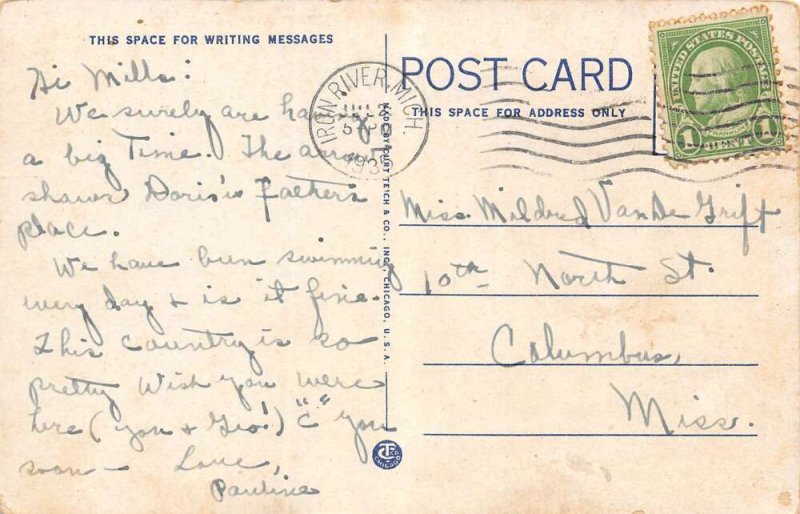 THIS SPACE FOR WRITING MESSAGES
Hi Mills:
We surely are having
a big time. The arrow
shows Doris's father's
place.
We have been swimming
every day & is it fine.
This country is so
pretty Wish you were
here (you & Geo!) "C" you
soon - Love,
Pauline
KODOBY CURT TEICH & CO., INC., CHICAGO, U.S.A.
CT & CO
CHICAGO
IRON RIVER, MICH.
JUL
5 PM
1935
POST CARD
THIS SPACE FOR ADDRESS ONLY
UNITED STATES POSTAGE
FRANKLIN
1 CENT 1
Miss Mildred VanDe Grift
10th North St.
Columbus,
Miss.